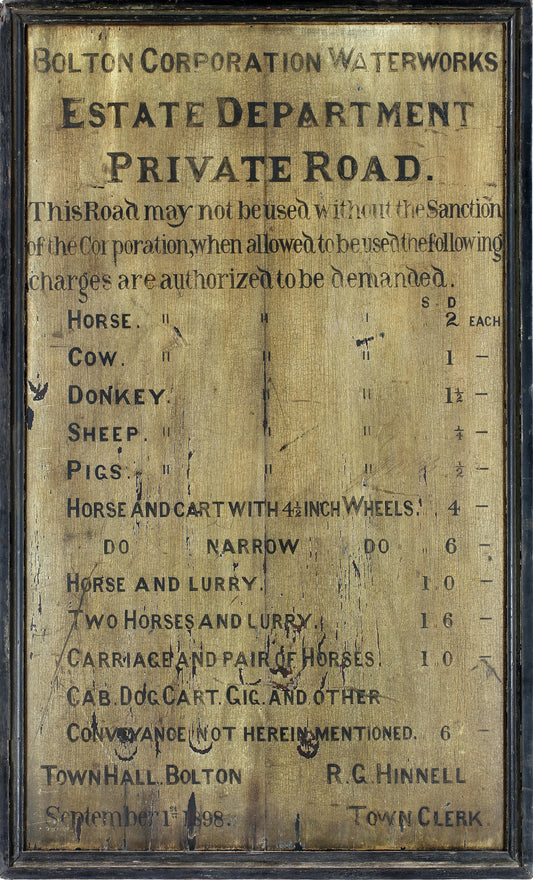 BOLTON CORPORATION WATERWORKS
ESTATE DEPARTMENT
PRIVATE ROAD.
This Road may not be used without the Sanction
of the Corporation, when allowed to be used the following
charges are authorized to be demanded.
S. D
HORSE. " " " 2 EACH
COW. " " " 1 –
DONKEY. " " " 1½ –
SHEEP. " " " ¼ –
PIGS. " " " ½ –
HORSE AND CART WITH 4½ INCH WHEELS. 4 –
DO NARROW DO 6 –
HORSE AND LURRY. 1. 0 –
TWO HORSES AND LURRY. 1. 6 –
CARRIAGE AND PAIR OF HORSES. 1. 0 –
CAB. DOG CART. GIG. AND OTHER
CONVEYANCE NOT HEREIN MENTIONED. 6 –
TOWN HALL. BOLTON R. G. HINNELL
September 1st 1898. TOWN CLERK.